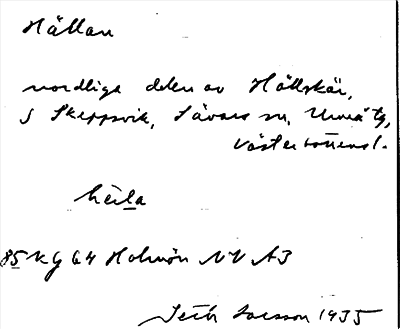 Hällan
nordliga delen av Hällskär,
S Skeppsvik, Sävars sn, Umeå tg,
Västerbottens l.
hèila
85 Kg 64 Holmön NV A3
Seth Larsson 1935